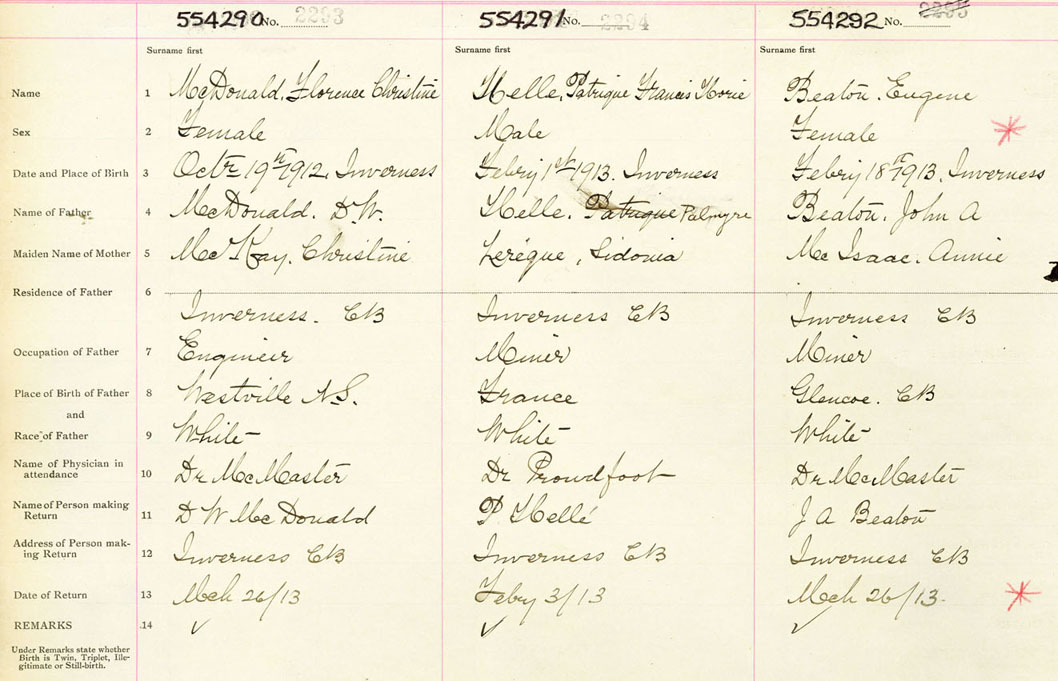 554290 No. 2293 554291 No. 2294 554292 No.
Surname first Surname first Surname first
Name 1 McDonald, Florence Christine Helle, Patrique Francis Marie Beaton. Eugene
Sex 2 Female Male Female
Date and Place of Birth 3 Octr 19th 1912, Inverness Febry 1st 1913. Inverness Febry 18th 1913. Inverness
Name of Father 4 McDonald. D.W. Helle. Patrique Palmyre Beaton. John A
Maiden Name of Mother 5 McKay. Christine Lerégue, Sidonia Mc Isaac. Annie
Residence of Father 6
Inverness. CB Inverness CB Inverness CB
Occupation of Father 7 Engineer Miner Miner
Place of Birth of Father 8 Westville N.S. France Glencoe. CB
and
Race of Father 9 White White White
Name of Physician in
attendance 10 Dr McMaster Dr Proudfoot Dr McMaster
Name of Person making
Return 11 D W McDonald P Hellé J A Beaton
Address of Person mak-
ing Return 12 Inverness CB Inverness CB Inverness CB
Date of Return 13 Mch 26/13 Febry 3/13 Mch 26/13.
REMARKS 14
Under Remarks state whether
Birth is Twin, Triplet, Ille-
gitimate or Still-birth.